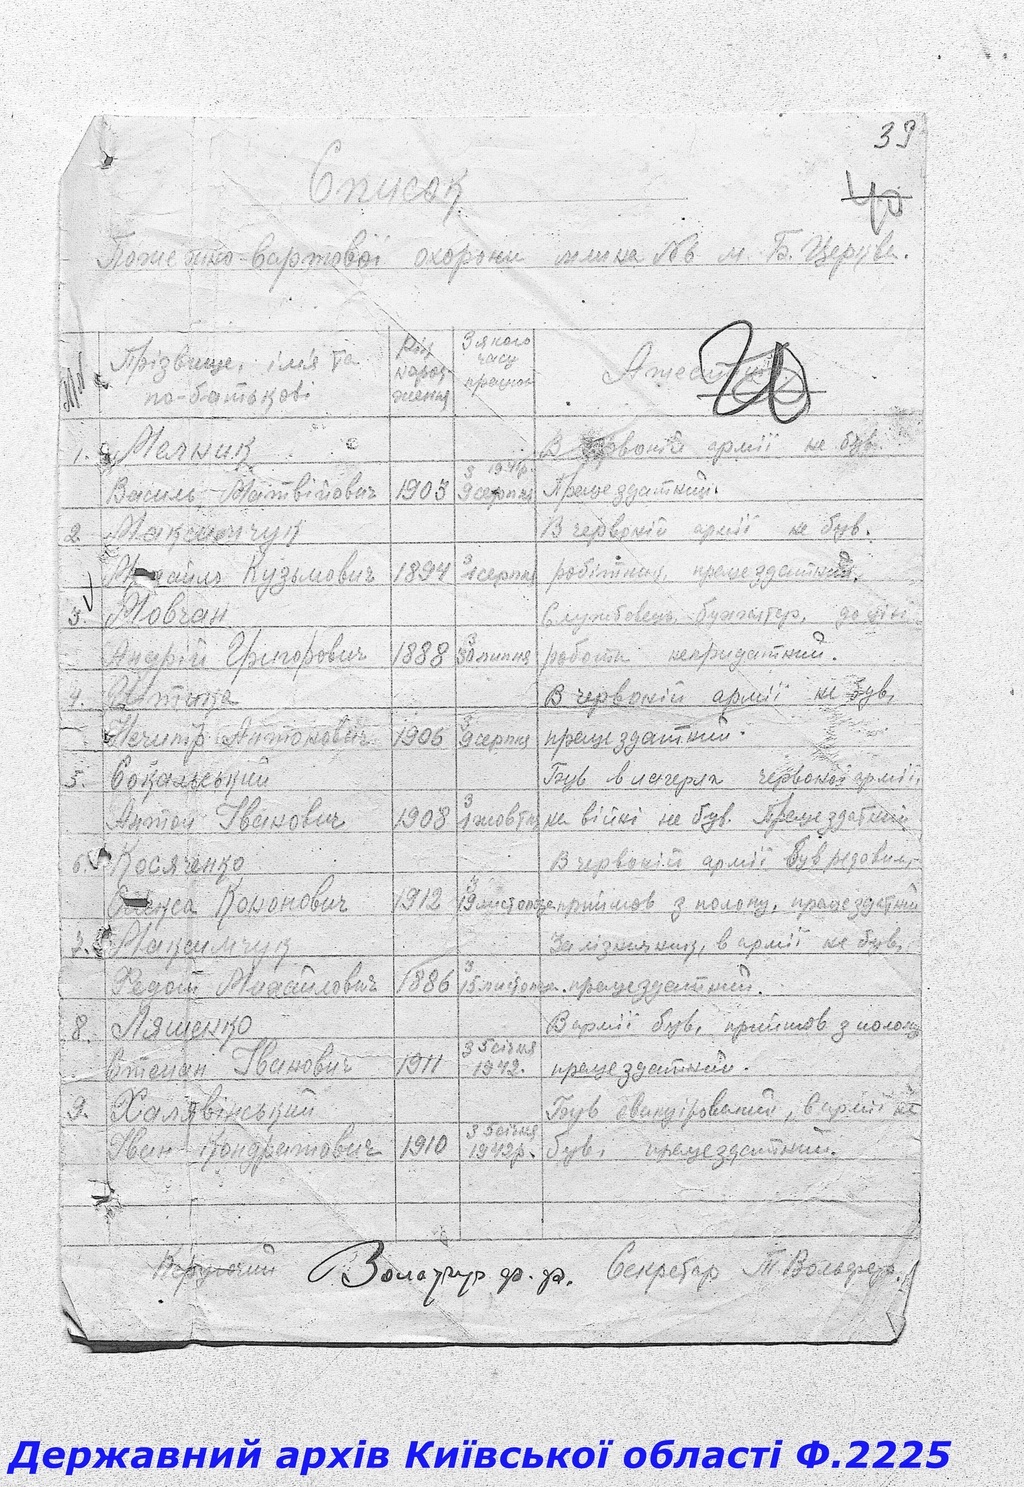 39
40
Список
Пожежно-вартової охорони млина №6 м. Б. Церква.
№№ Прізвище, ім'я та по-батькові Рік народження З якого часу працює
1. Мельник В червоній армії не був.
Василь Матвійович 1903 З 1941р. 9 серпня Працездатний.
2. Максимчук В червоній армії не був.
Михайль Кузьмович 1894 З 1 серпня робітник, працездатний.
3. Мовчан Службовець бухгалтер, до фіз
Андрій Григорович 1888 З 30 липня роботи непридатний.
4. В червоній армії не був,
Антонович 1906 З 9 серпня працездатний.
5. Сокальський Був в лагерях червоної армії,
Антон Іванович 1908 З 1 жовтня на війні не був. Працездатний
6. Косяченко В червоній армії був рядовим,
Олекса Кононович 1912 З 19 листопада прийшов з полону, працездатний
7. Максимчук Залізничник, в армії не був,
Федот Михайлович 1886 З 15 листопа. працездатний.
8. Ляшенко В армії був, прийшов з полону
Степан Іванович 1911 З 5 січня 1942. працездатний.
9. Халявінський Був евакуірований, в армії не
Іван Кондратович 1910 З 5 січня 1942р. був, працездатний.
Керуючий Секретар Т. Вольфер.
Державний архів Київської області Ф.2225